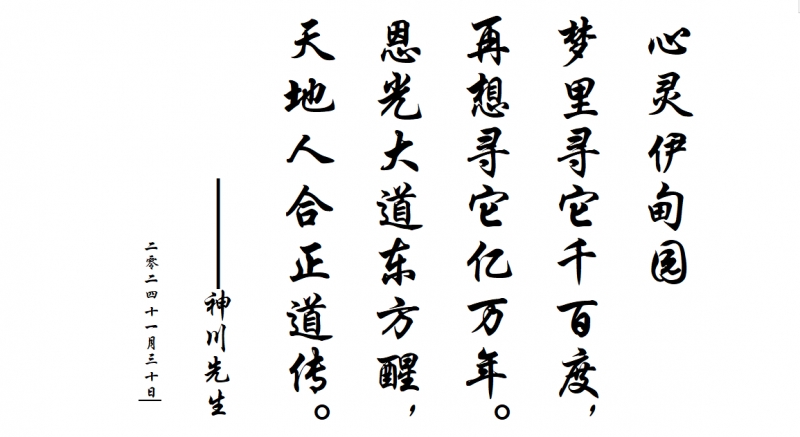 心灵伊甸园
梦里寻它千百度，
再想寻它亿万年。
恩光大道东方醒，
天地人合正道传。
——神川先生
二零二四十一月三十日